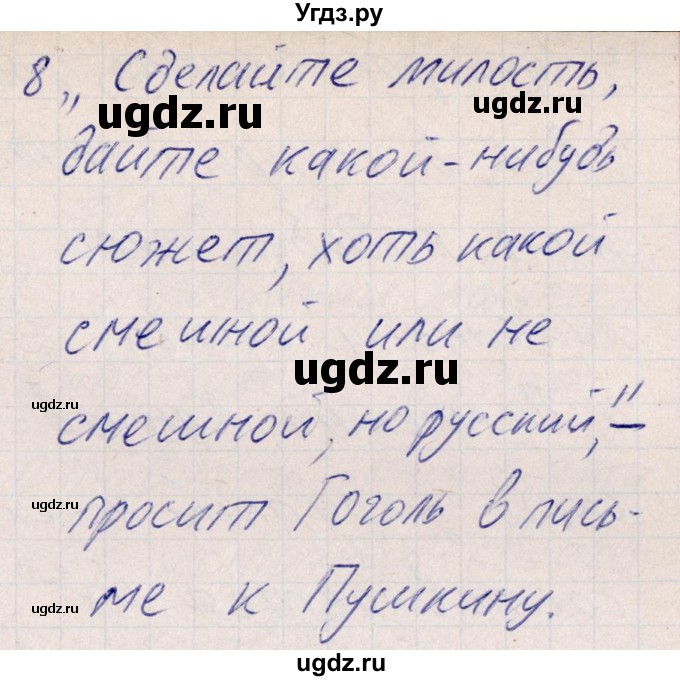 Угдз.ру
8 „ Сделайте милость,
ugdz.ru ugdz.ru
дайте какой-нибудь
сюжет, хоть какой
смешной или не
ugdz.ru
ugdz.ru
смешной, но русский," —
ugdz.ru
просит Гоголь в пись-
ugdz.ru
ме к Пушкину.
ugdz.ru